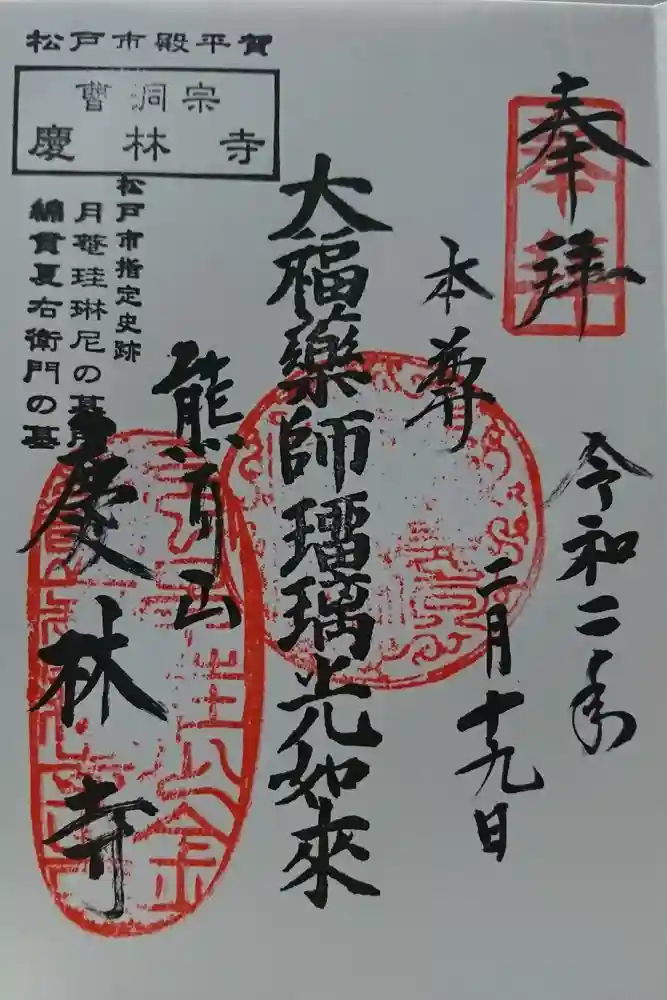 奉拝
令和二年
二月十九日
本尊
大福薬師瑠璃光如來
熊耳山
慶林寺
松戸市殿平賀
曹洞宗
慶林寺
松戸市指定史跡
月菴珪琳尼の墓所
綿貫夏右衛門の墓